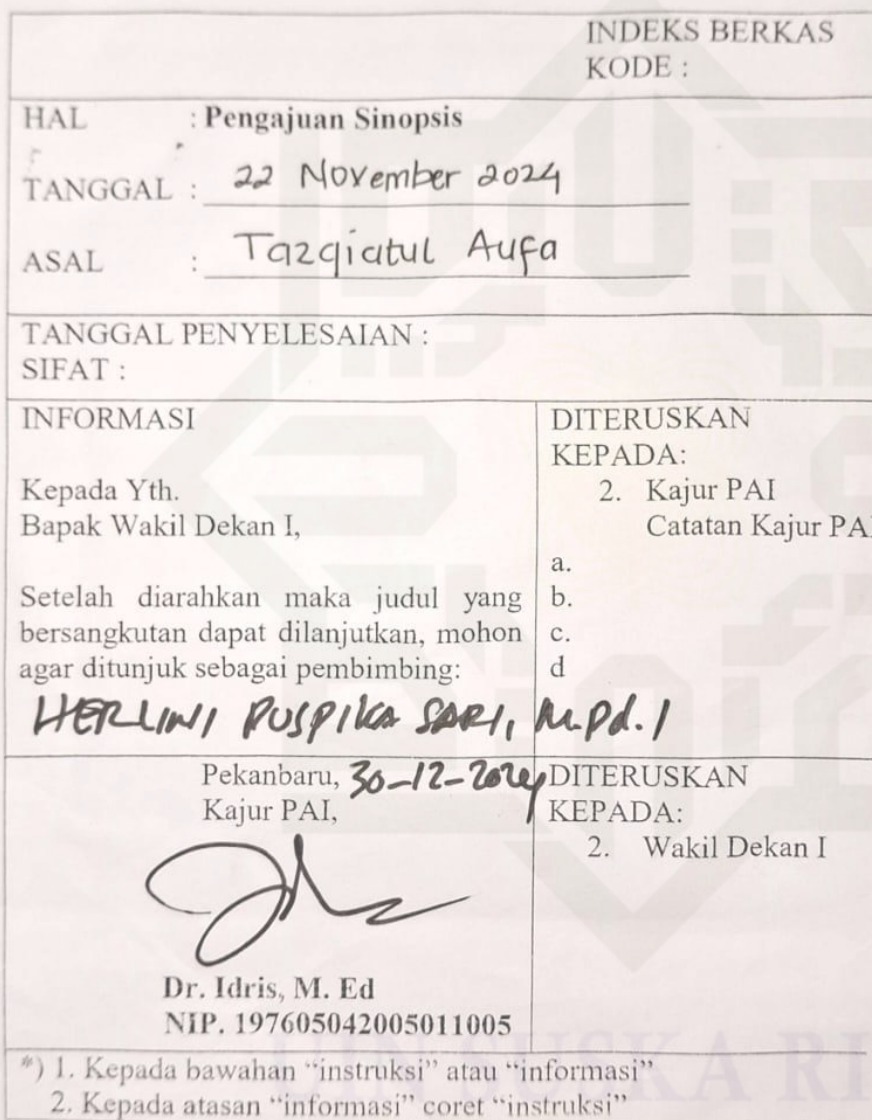 INDEKS BERKAS
KODE :
HAL : Pengajuan Sinopsis
TANGGAL : 22 November 2024
ASAL : Tazqiatul Aufa
TANGGAL PENYELESAIAN :
SIFAT :
INFORMASI
Kepada Yth.
Bapak Wakil Dekan I,
Setelah diarahkan maka judul yang
bersangkutan dapat dilanjutkan, mohon
agar ditunjuk sebagai pembimbing:
HERLINI PUSPIKA SARI, M.Pd.I
DITERUSKAN
KEPADA:
2. Kajur PAI
Catatan Kajur PAI
a.
b.
c.
d
Pekanbaru, 30-12-2024
Kajur PAI,
Dr. Idris, M. Ed
NIP. 197605042005011005
DITERUSKAN
KEPADA:
2. Wakil Dekan I
*) 1. Kepada bawahan “instruksi” atau “informasi”
2. Kepada atasan “informasi” coret “instruksi”
UIN SUSKA RI